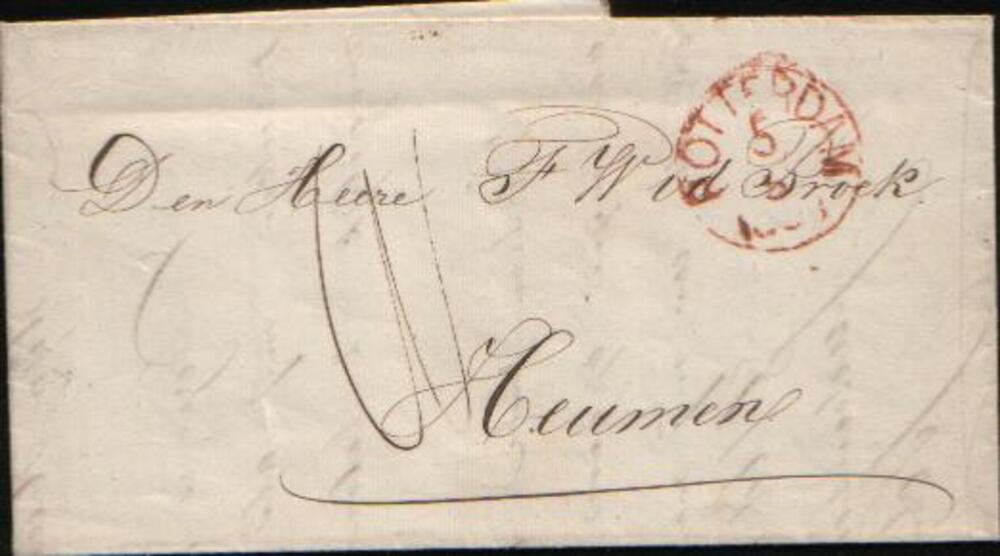 ROTTERDAM
5
Den Heere F W vd Broek
Heumen